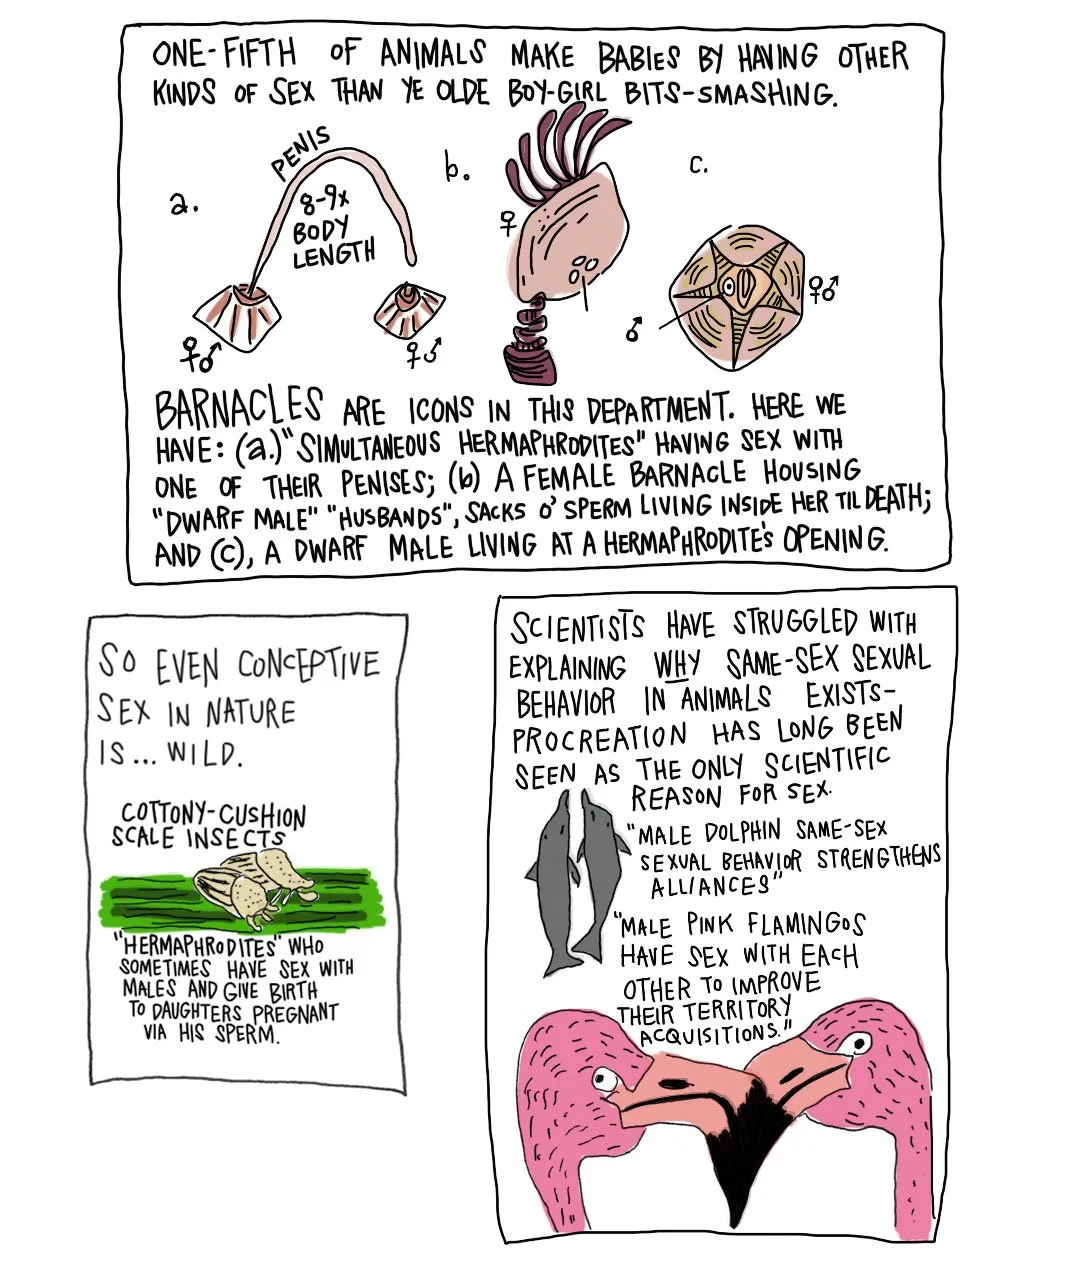 ONE-FIFTH OF ANIMALS MAKE BABIES BY HAVING OTHER
KINDS OF SEX THAN YE OLDE BOY-GIRL BITS-SMASHING.
a.
PENIS
8-9x
BODY
LENGTH
♀♂
♀♂
b.
♀
c.
♂
♀♂
BARNACLES ARE ICONS IN THIS DEPARTMENT. HERE WE
HAVE: (a.) "SIMULTANEOUS HERMAPHRODITES" HAVING SEX WITH
ONE OF THEIR PENISES; (b) A FEMALE BARNACLE HOUSING
"DWARF MALE" "HUSBANDS", SACKS O' SPERM LIVING INSIDE HER TIL DEATH;
AND (C), A DWARF MALE LIVING AT A HERMAPHRODITE'S OPENING.
SO EVEN CONCEPTIVE
SEX IN NATURE
IS... WILD.
COTTONY-CUSHION
SCALE INSECTS
"HERMAPHRODITES" WHO
SOMETIMES HAVE SEX WITH
MALES AND GIVE BIRTH
TO DAUGHTERS PREGNANT
VIA HIS SPERM.
SCIENTISTS HAVE STRUGGLED WITH
EXPLAINING WHY SAME-SEX SEXUAL
BEHAVIOR IN ANIMALS EXISTS-
PROCREATION HAS LONG BEEN
SEEN AS THE ONLY SCIENTIFIC
REASON FOR SEX.
"MALE DOLPHIN SAME-SEX
SEXUAL BEHAVIOR STRENGTHENS
ALLIANCES"
"MALE PINK FLAMINGOS
HAVE SEX WITH EACH
OTHER TO IMPROVE
THEIR TERRITORY
ACQUISITIONS."